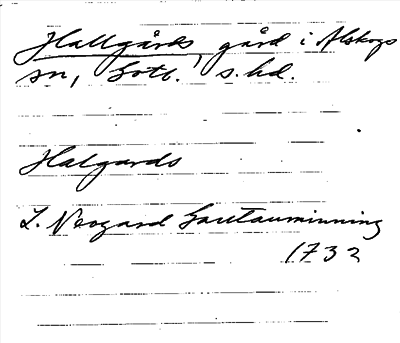 Hallgårds, gård i Alskogs
sn, Gotl. s. hd.
Halgards
L. Neogard Gautauminning
1732